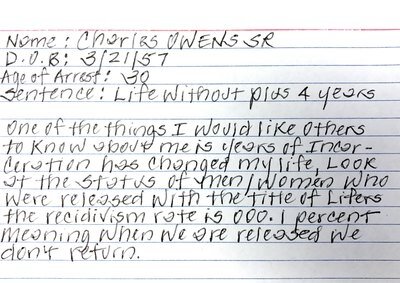 Name: Charles OWENS SR
D.O.B: 3/21/57
Age of Arrest: 30
Sentence: Life without plus 4 years
One of the things I would like others
to know about me is years of Incar-
ceration has changed my life, Look
at the status of men/women who
were released with the title of Lifers
the recidivism rate is 000.1 percent
Meaning when we are released we
don't return.